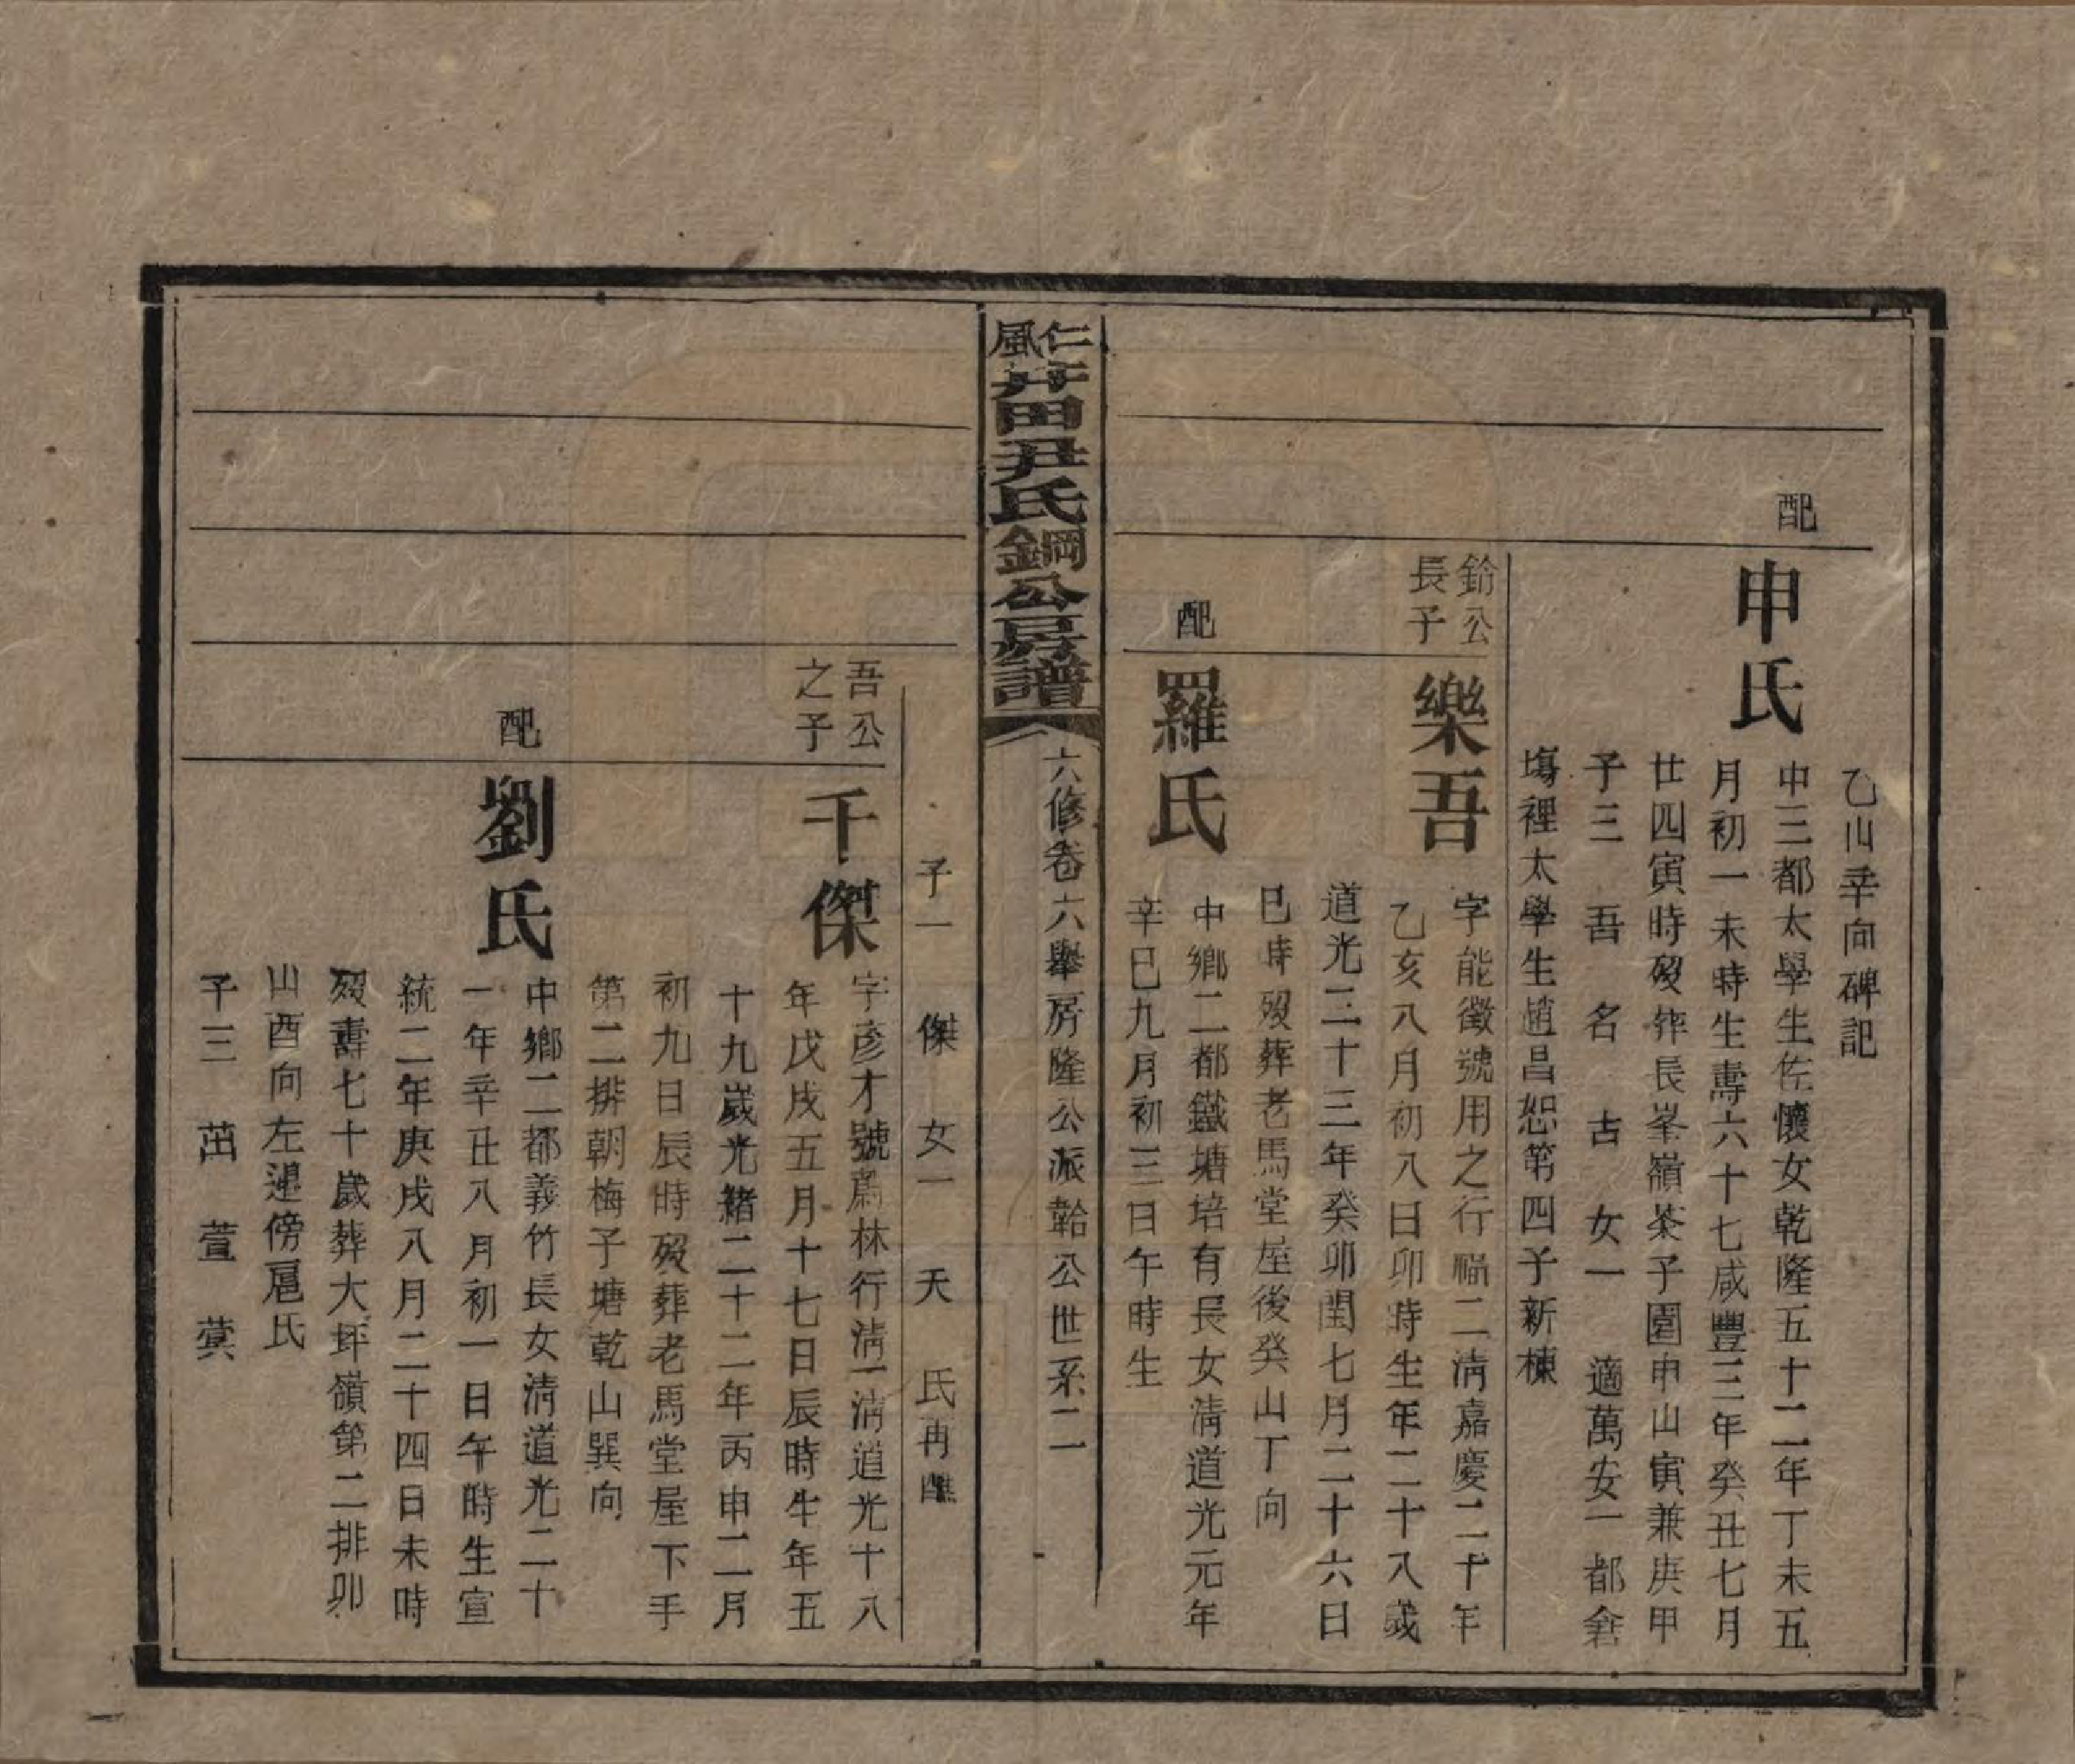 乙山辛向碑記
配
申氏
中三都太學生佐懷女乾隆五十二年丁未五
月初一未時生壽六十七咸豐三年癸丑七月
廿四寅時歿葬長峯嶺茶子園申山寅兼庚甲
子三 吾 名 古 女一 適萬安一都倉
塲裡太學生趙昌恕第四子新棟
鈖公
長子
樂吾
字能徵號用之行福二清嘉慶二十年
乙亥八月初八日卯時生年二十八歲
道光二十三年癸卯閏七月二十六日
巳時歿葬老馬堂屋後癸山丁向
配
羅氏
中鄉二都鐵塘培有長女清道光元年
辛巳九月初三日午時生
仁風井田尹氏鋼公房譜
六修卷六舉房隆公派鞈公世系二
子一 傑 女一 天 氏再醮
吾公
之子
千傑
字彥才號蔚林行清一清道光十八
年戊戌五月十七日辰時生年五
十九歲光緒二十二年丙申二月
初九日辰時歿葬老馬堂屋下手
第二排朝梅子塘乾山巽向
配
劉氏
中鄉二都義竹長女清道光二十
一年辛丑八月初一日午時生宣
統二年庚戌八月二十四日未時
歿壽七十歲葬大坪嶺第二排卯
山酉向左邊傍扈氏
子三 茁 萱 蓂